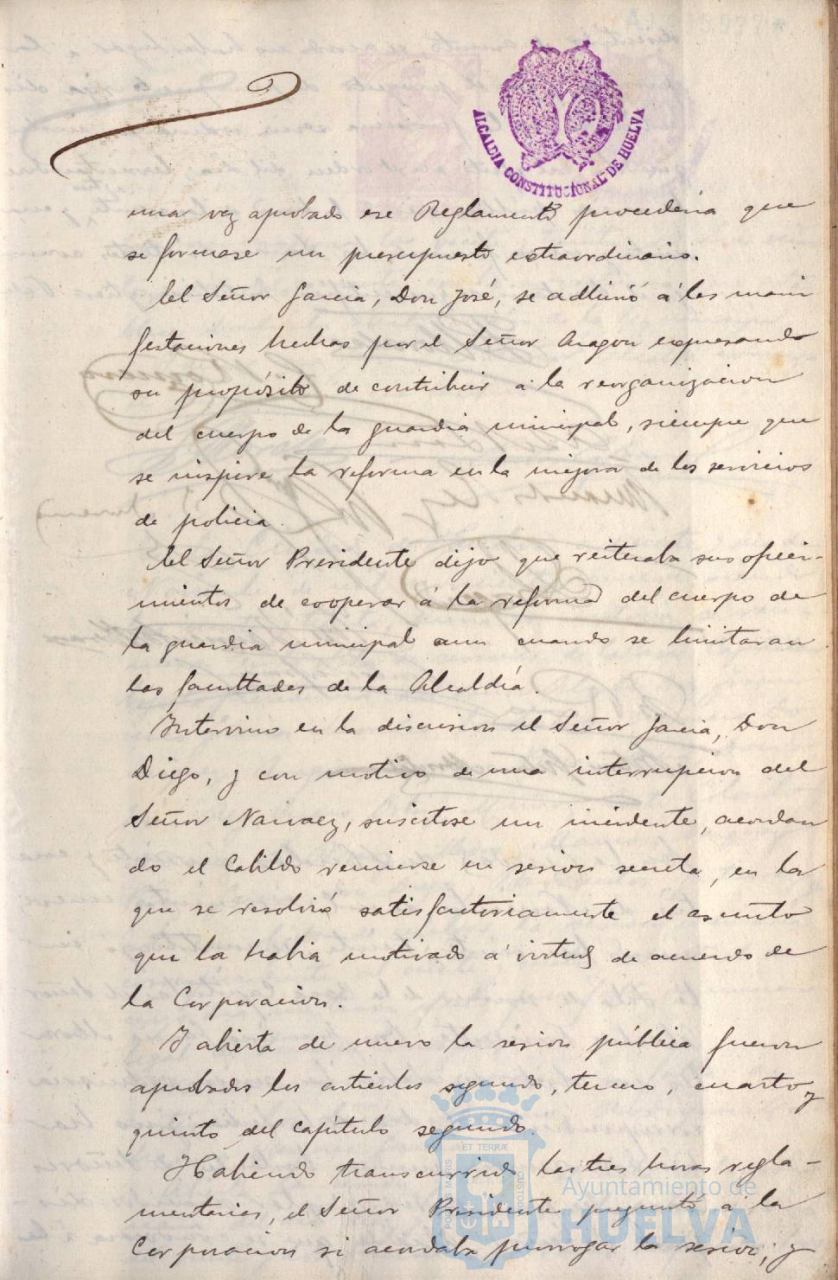 ALCALDIA CONSTITUCIONAL DE HUELVA
una vez aprobado ese Reglamento procederia que
se formase un presupuesto extraordinario.
El Señor Garcia, Don José, se adhirió á las mani
festaciones hechas por el Señor Aragon expresando
su propósito de contribuir a la reorganizacion
del cuerpo de la guardia municipal, siempre que
se inspire la reforma en la mejora de los servicios
de policia.
El Señor Presidente dijo que reiteraba sus ofreci-
mientos de cooperar á la reforma del cuerpo de
la guardia municipal aun cuando se limitaran
las facultades de la Alcaldía.
Intervino en la discusion el Señor Garcia, Don
Diego, y con motivo de una interrupcion del
Señor Narvaez, suscitose un incidente, acordan
do el Cabildo reunirse en sesion secreta, en la
que se resolvió satisfactoriamente el asunto
que la habia motivado á virtud de acuerdo de
la Corporacion.
Y abierta de nuevo la sesion pública fueron
aprobados los articulos segundo, tercero, cuarto y
quinto del capítulo segundo.
Habiendo transcurrido las tres horas regla-
mentarias, el Señor Presidente preguntó á la
Corporacion si acordaba prorrogar la sesion; y
ET TERRÆ
PORTUS MARIS
CUSTODIA
Ayuntamiento de
HUELVA